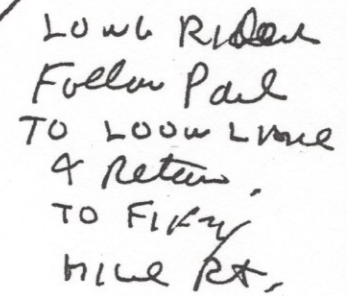 Long Rider
Follow Paul
TO LOOW LINE
& Return.
TO FIFTY
MILE Rt.